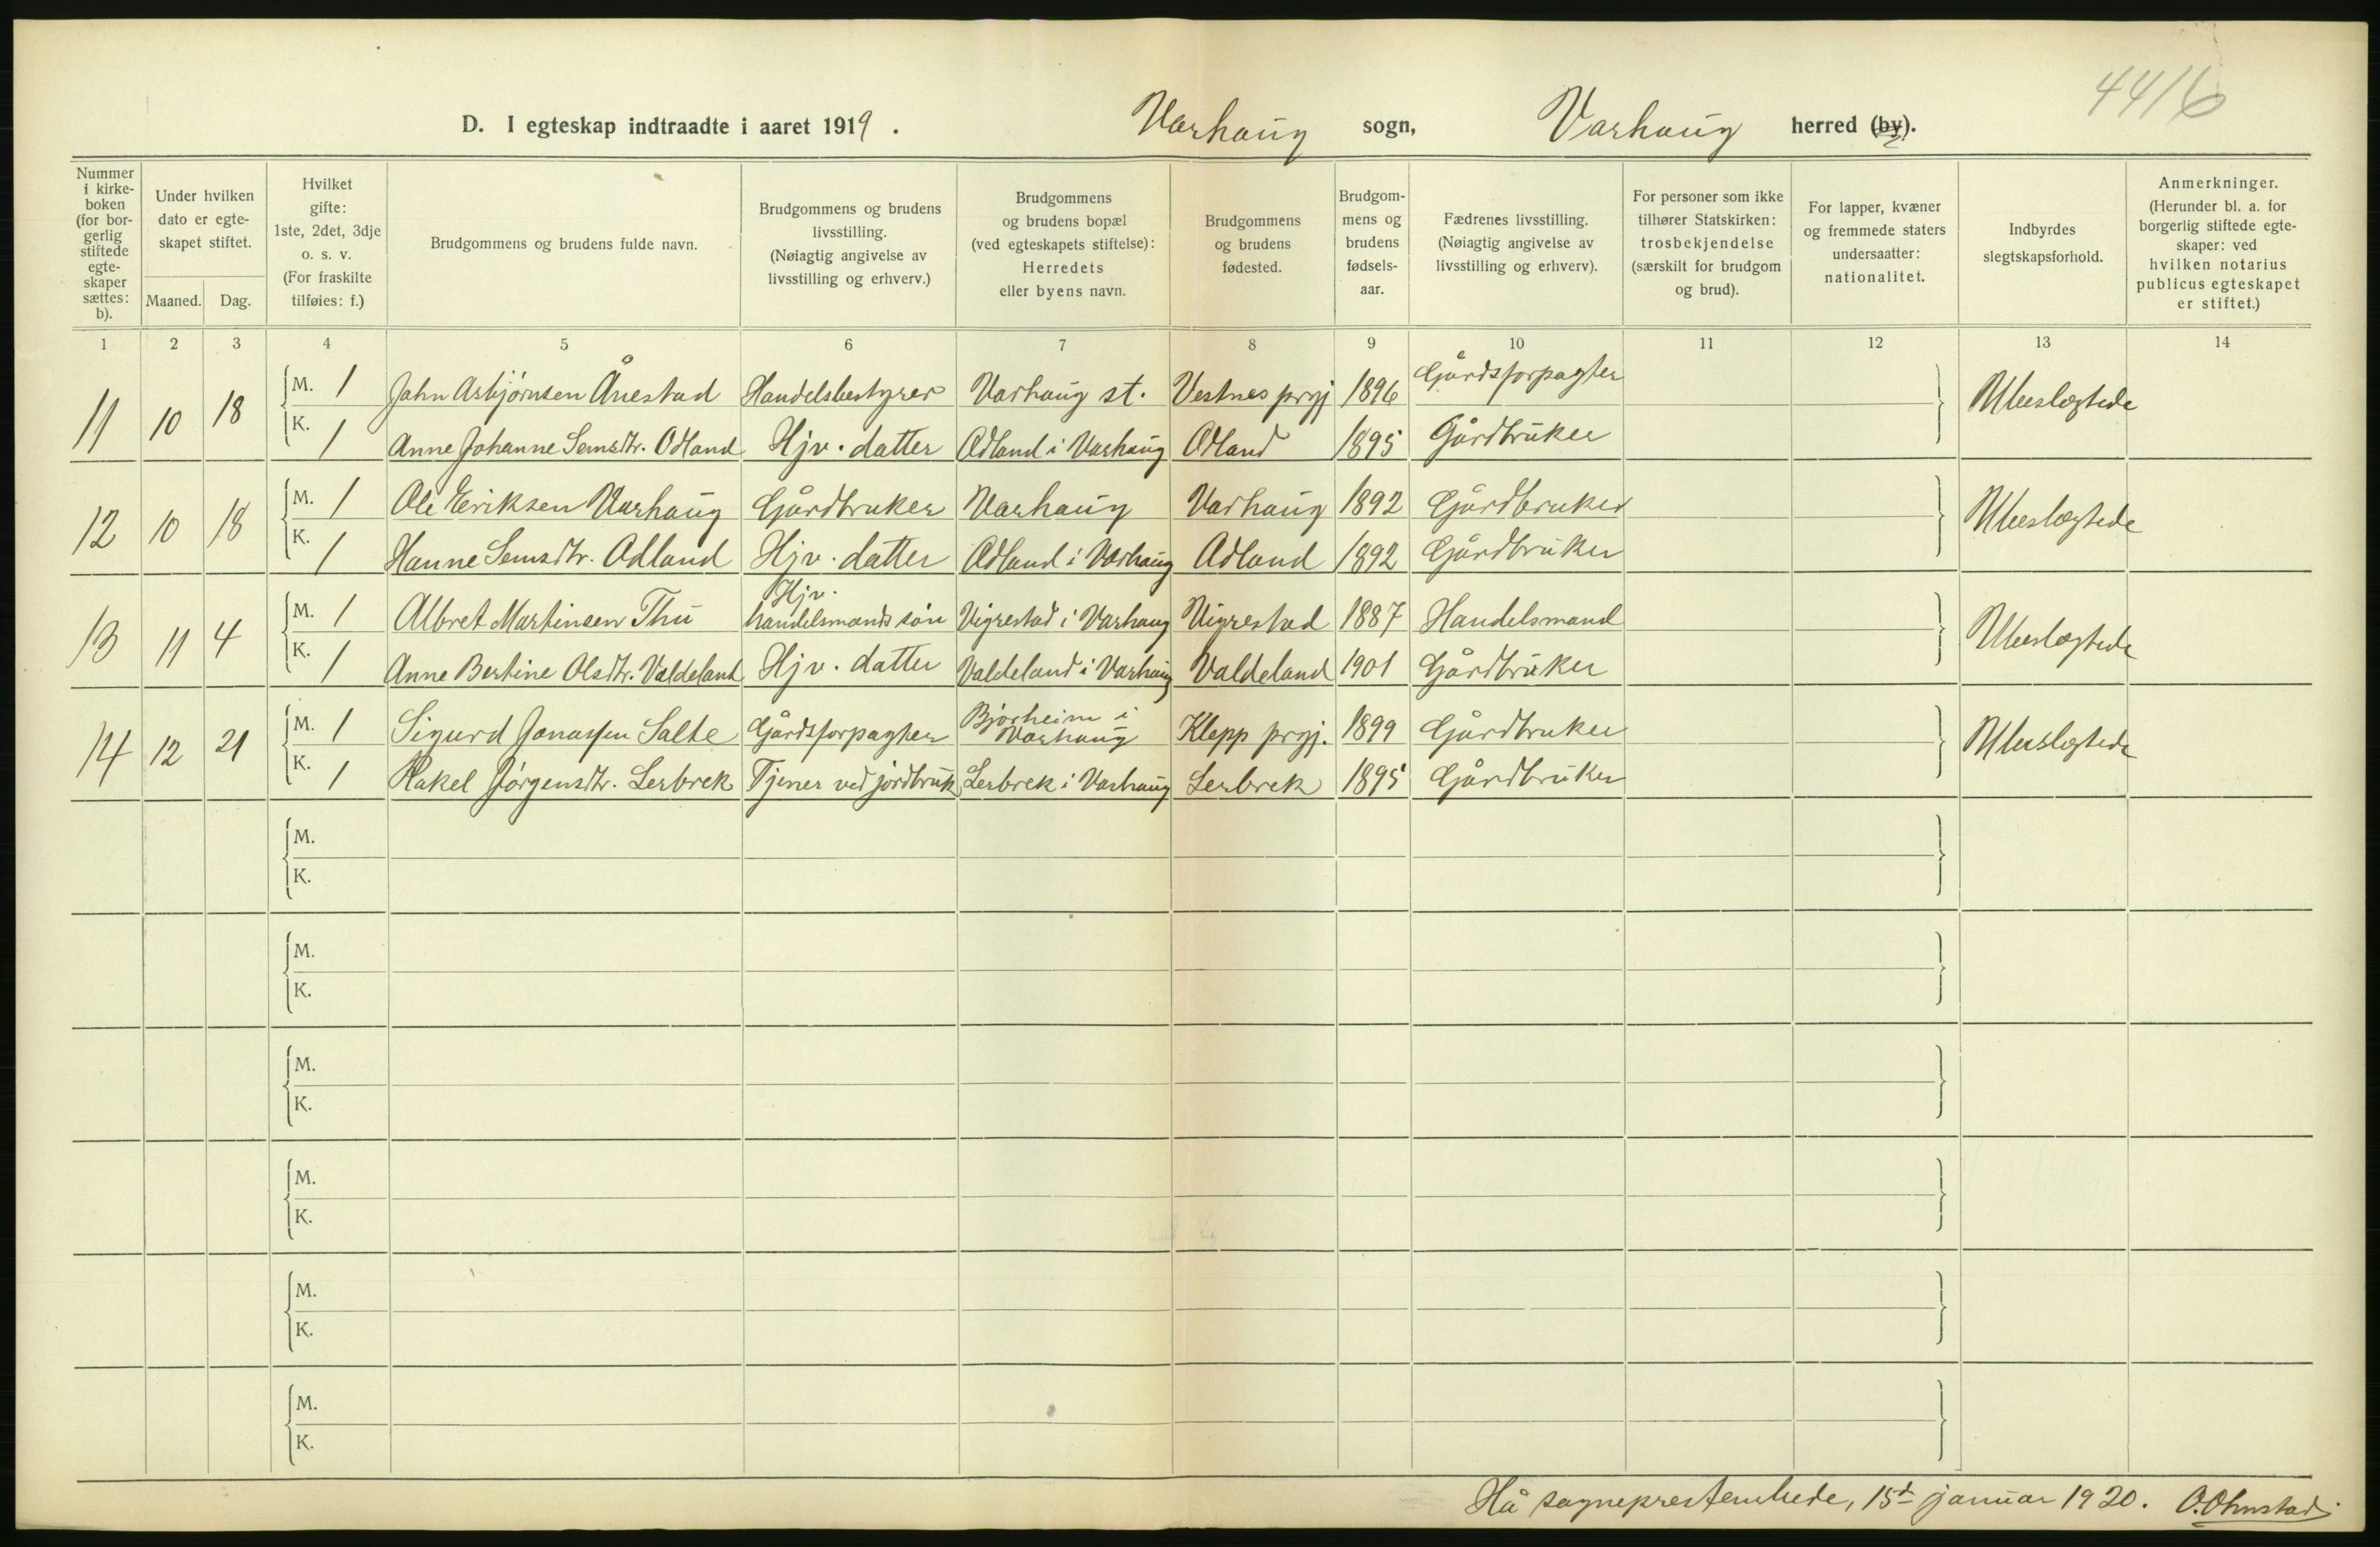 4416
D. I egteskap indtraadte i aaret 1919. Varhaug sogn, Varhaug herred (by).
Nummer i kirkeboken (for borgerlig stiftede egteskaper sættes: b).
Under hvilken dato er egteskapet stiftet.
Maaned. Dag.
Hvilket gifte: 1ste, 2det, 3dje o. s. v. (For fraskilte tilføies: f.)
Brudgommens og brudens fulde navn.
Brudgommens og brudens livsstilling. (Nøiagtig angivelse av livsstilling og erhverv.)
Brudgommens og brudens bopæl (ved egteskapets stiftelse): Herredets eller byens navn.
Brudgommens og brudens fødested.
Brudgommens og brudens fødselsaar.
Fædrenes livsstilling. (Nøiagtig angivelse av livsstilling og erhverv).
For personer som ikke tilhører Statskirken: trosbekjendelse (særskilt for brudgom og brud).
For lapper, kvæner og fremmede staters undersaatter: nationalitet.
Indbyrdes slegtskapsforhold.
Anmerkninger. (Herunder bl. a. for borgerlig stiftede egteskaper: ved hvilken notarius publicus egteskapet er stiftet.)
1 2 3 4 5 6 7 8 9 10 11 12 13 14
11 10 18 M. 1 John Asbjørnsen Ånestad Handelsbestyrer Varhaug st. Vestnes prgj 1896 Gårdsforpagter Ubeslegtede
K. 1 Anne Johanne Semsdtr. Odland Hjv. datter Ødland i Varhaug Odland 1895 Gårdbruker
12 10 18 M. 1 Ole Eriksen Varhaug Gårdbruker Varhaug Varhaug 1892 Gårdbruker Ubeslegtede
K. 1 Hanne Semsdtr. Ødland Hjv. datter Ødland i Varhaug Ødland 1892 Gårdbruker
13 11 4 M. 1 Albret Martinsen Thu Hjv. handelsmands søn Vigrestad i Varhaug Vigrestad 1887 Handelsmand Ubeslegtede
K. 1 Anne Bertine Olsdtr. Valdeland Hjv. datter Valdeland i Varhaug Valdeland 1901 Gårdbruker
14 12 21 M. 1 Sigurd Jonassen Salte Gårdsforpagter Bjorheim i Varhaug Klepp prgj. 1899 Gårdbruker Ubeslegtede
K. 1 Rakel Jørgensdtr. Lerbrek Tjener ved jordbruk Lerbrek i Varhaug Lerbrek 1895 Gårdbruker
M.
K.
M.
K.
M.
K.
M.
K.
M.
K.
M.
K.
Hå sogneprestembede, 15d januar 1920. O. Ohnstad.